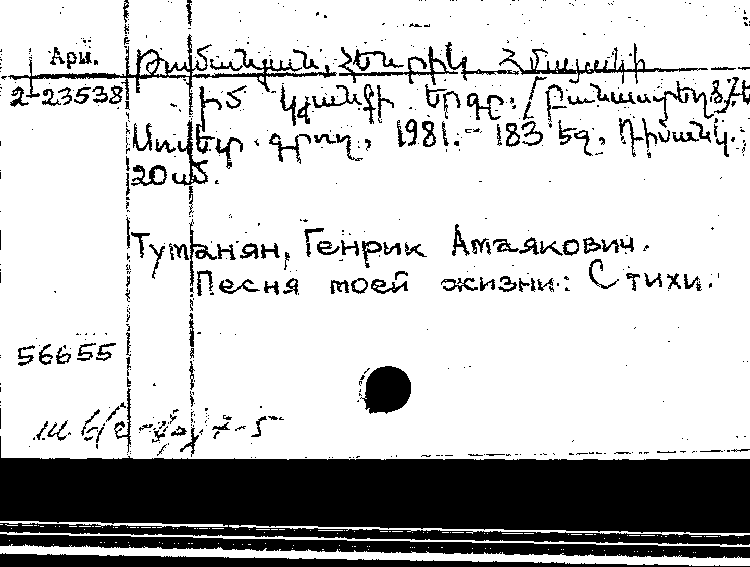 Арм. Թումանյան, Հենրիկ Հմայակի
2-23538 Իմ կյանքի երգը: /բանաստեղծ/. Ե
Սովետ. գրող, 1981.- 183 էջ, դիմանկ.;
20 սմ.
Туманян, Генрик Амаякович.
Песня моей жизни: Стихи.
56655
7-5